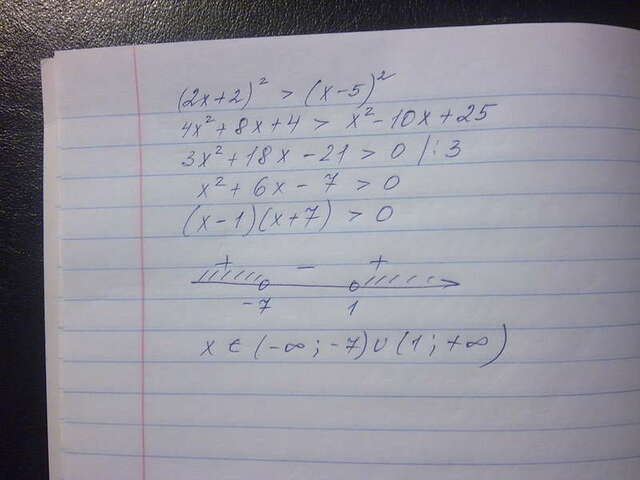 (2x+2)² > (x-5)²
4x²+8x+4 > x²-10x+25
3x²+18x-21 > 0 /:3
x²+6x-7 > 0
(x-1)(x+7) > 0
+ - +
-7 1
x ∈ (-∞; -7) ∪ (1; +∞)